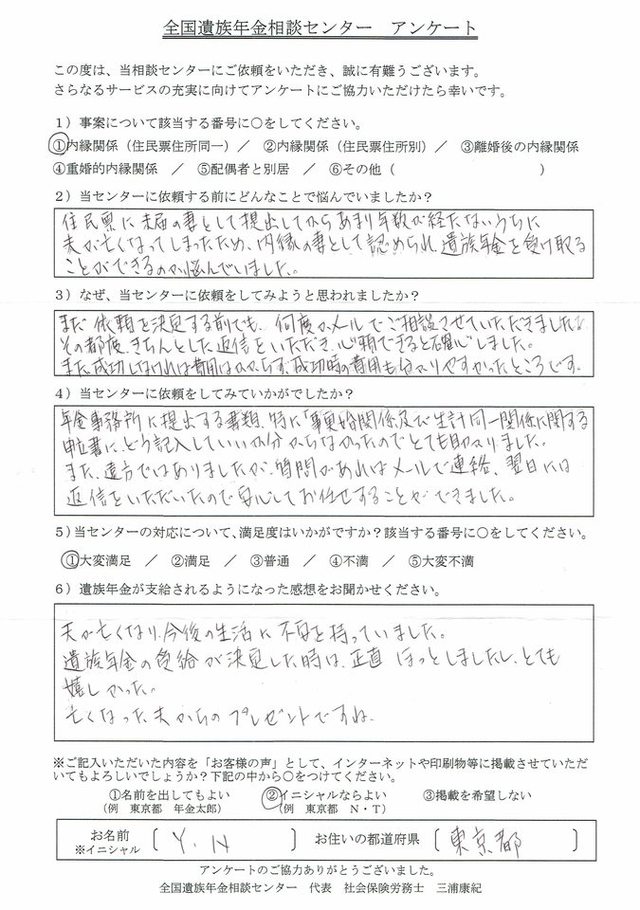 全国遺族年金相談センター　アンケート
この度は、当相談センターにご依頼をいただき、誠に有難うございます。
さらなるサービスの充実に向けてアンケートにご協力いただけたら幸いです。
1）事案について該当する番号に○をしてください。
①内縁関係（住民票住所同一）／　②内縁関係（住民票住所別）／　③離婚後の内縁関係
④重婚的内縁関係　／　⑤配偶者と別居　／　⑥その他（　　　　　　　　　　）
2）当センターに依頼する前にどんなことで悩んでいましたか？
住民票に未届の妻として提出してからあまり年数が経たないうちに
夫が亡くなってしまったため、内縁の妻として認められ、遺族年金を受け取る
ことができるのか悩んでいました。
3）なぜ、当センターに依頼をしてみようと思われましたか？
まだ依頼を決定する前でも、何度かメールでご相談させていただきましたが、
その都度、きちんとした返信をいただき、信頼できると確信しました。
また成功しなければ費用はかからず、成功時の費用も分かりやすかったところです。
4）当センターに依頼をしてみていかがでしたか？
年金事務所に提出する書類、特に「事実婚関係及び生計同一関係に関する
申立書」に、どう記入していいか分からなかったのでとても助かりました。
また、遠方ではありましたが、質問があればメールで連絡、翌日には
返信をいただいたので安心してお任せすることができました。
5）当センターの対応について、満足度はいかがですか？該当する番号に○をしてください。
①大変満足　／　②満足　／　③普通　／　④不満　／　⑤大変不満
6）遺族年金が支給されるようになった感想をお聞かせください。
夫が亡くなり、今後の生活に不安を持っていました。
遺族年金の受給が決定した時は、正直ほっとしましたし、とても
嬉しかった。
亡くなった夫からのプレゼントですね。
※ご記入いただいた内容を「お客様の声」として、インターネットや印刷物等に掲載させていただ
いてもよろしいでしょうか？下記の中から○をつけてください。
①名前を出してもよい　　②イニシャルならよい　　③掲載を希望しない
（例　東京都　年金太郎）　　（例　東京都　N・T）
お名前　〔　Y．N　〕　お住いの都道府県　〔　東京都　〕
※イニシャル
アンケートのご協力ありがとうございました。
全国遺族年金相談センター　代表　社会保険労務士　三浦康紀